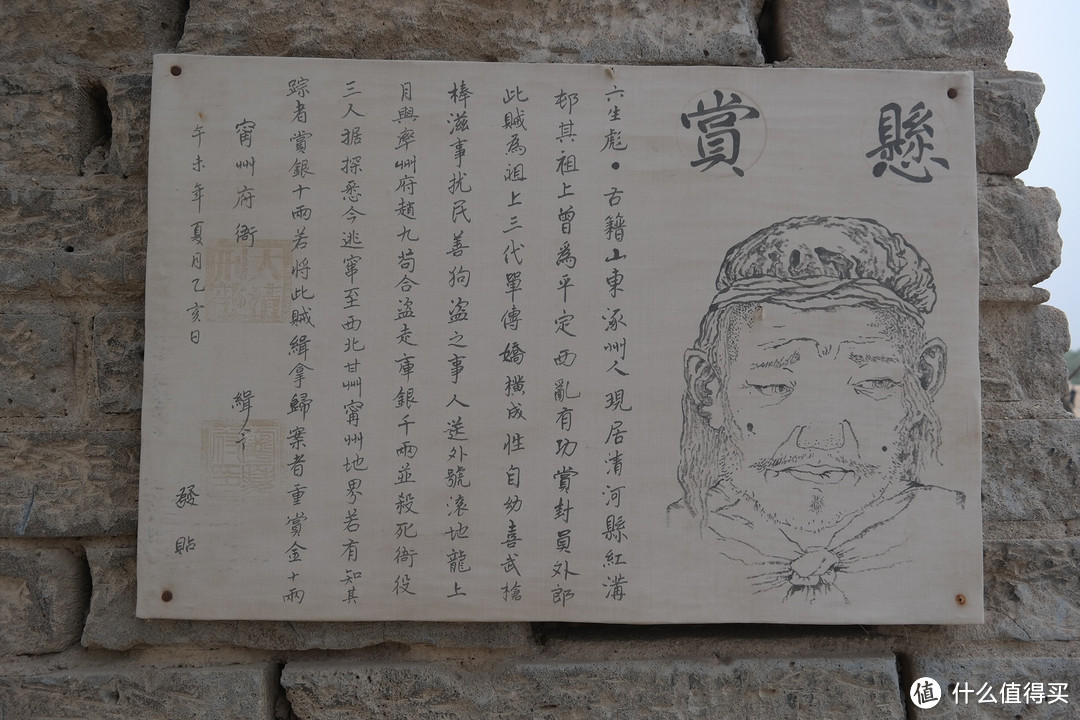 懸賞
六生彪•古籍山東涿州人現居清河縣紅溝
邨其祖上曾為平定西亂有功賞封員外郎
此賊為祖上三代單傳嬌横成性自幼喜武槍
棒滋事扰民善狗盗之事人送外號滚地龍上
月與寧州府趙九苟合盗走庫銀千兩並殺死衙役
三人据探悉今逃窜至西北甘州甯州地界若有知其
踪者賞銀十兩若將此賊緝拿歸案者重賞金十兩
甯州府衙 緝 發貼
午未年夏月乙亥日
值 什么值得买